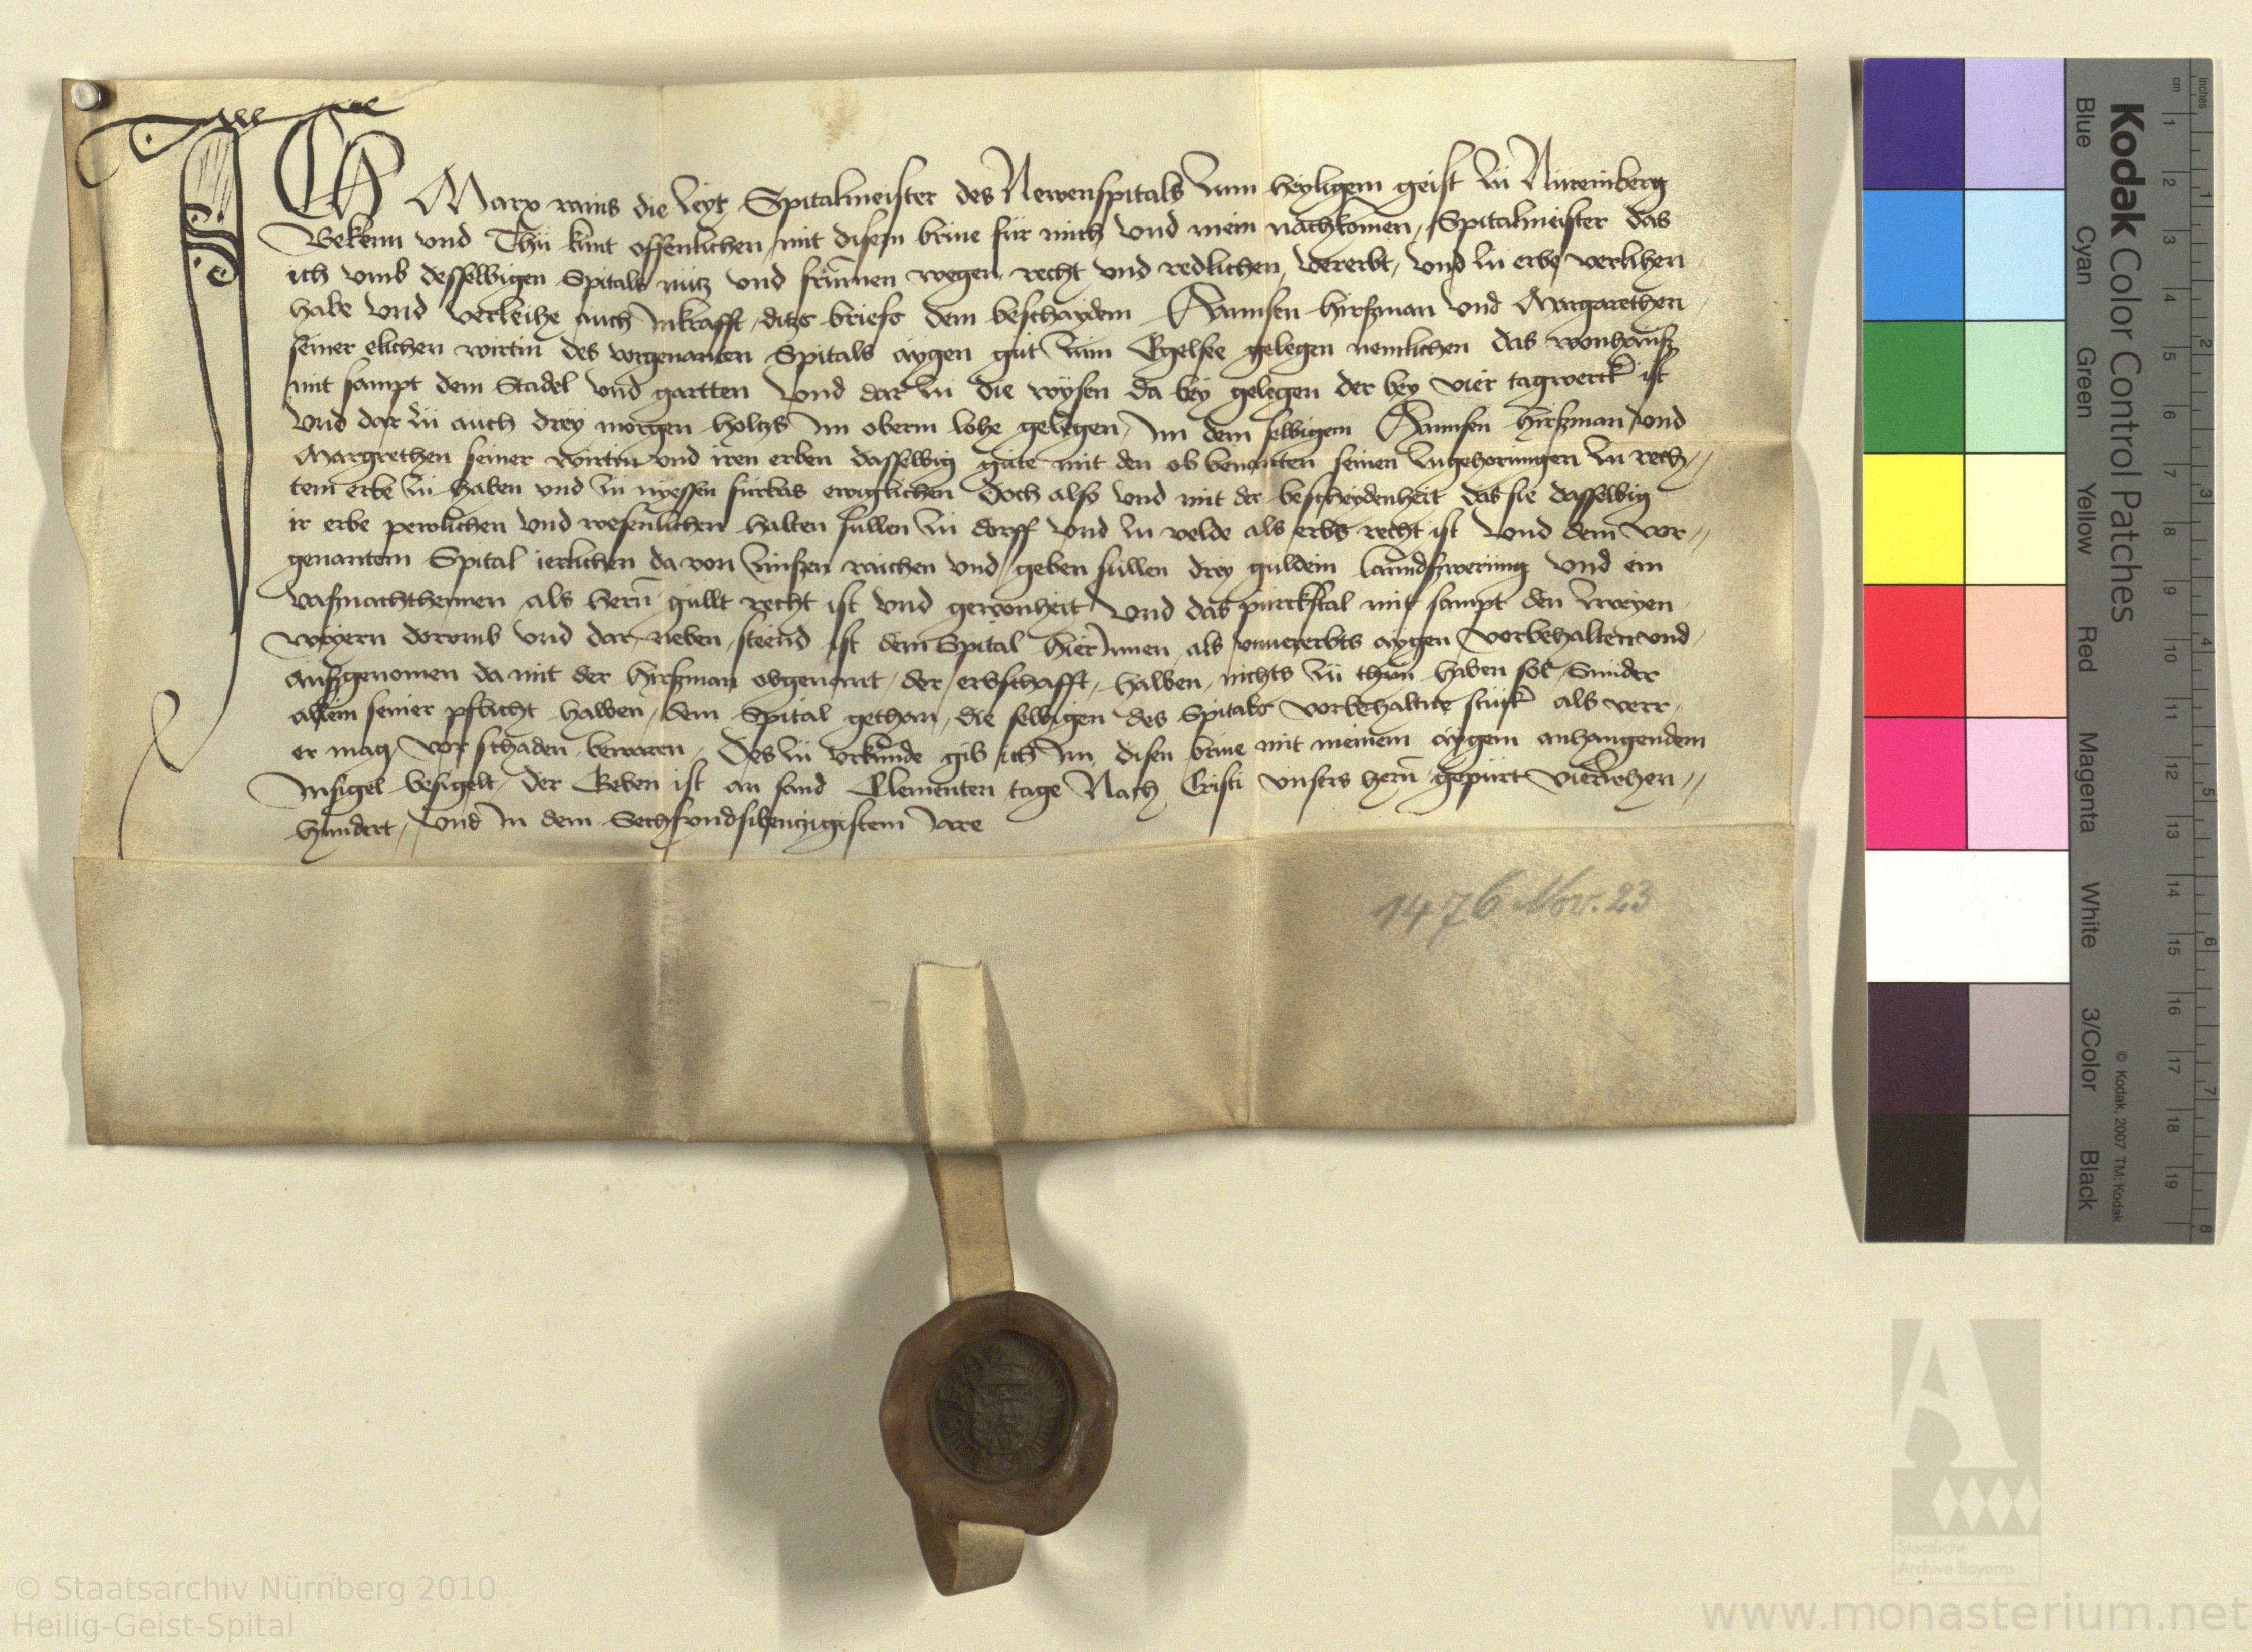 ICH Marx rains die Zeyt Spitalmeister des Newenspitals zum heyligem geist zu Nüremberg
Bekenn vnd Thu kunt offenlichen mit disem briue für mich vnd mein nachkomen, Spitalmeister das
ich vmb desselbigen Spitals nutz vnd frūmen wegen recht vnd redlichen, vererbt, vnd zu erbe verlihen
habe vnd verleihe auch Inkrafft ditzs briefs dem beschaydem Hannsen hirßman vnd Margarethen
seiner elichen wirtin des vorgenanten Spitals aygen gut zum Egelsee gelegen nemlichen das wonhauß
mit sampt dem Stadel vnd gartten vnd dar zu die wysen da bey gelegen der bey vier tagwerck ist
vnd dar zu auch drey morgen holtzs Im oberm lohe gelegen, Im dem selbigem Hannsen hirßman vnd
Margrethen seiner wirtin vnd iren erben dasselbig gute mit den ob benanten seinen zugehorungen zu rech//
tem erbe zu haben vnd zu nyessen fürbas ewiglichen Doch also vnd mit der bescheydenheit das sie dasselbig
ir erbe pewlichen vnd wesenlichen halten sullen zu dorff vnd zu velde als erbs recht ist vnd dem vor//
genantem Spital ierlichen da von zinßen raichen vnd geben sullen drey guldein lanndßwerung vnd ein
vaßnachthennen als hern̄ gullt recht ist vnd gewonheit vnd das purckstal mit sampt den zweyen
weyern dorumb vnd dar neben steend ist dem Spital hier Innen als vnuererbts aygen vorbehalten vnd
außgenomen da mit der hirßman obgenant, der erbschafft, halben, nichts zu thun haben sol, Sunder
allein seiner pflicht halben, dem Spital gethan, die selbigen des Spitals vorbehaltne stuck als verr,
er mag vor schaden bewaren, Des zu vrkunde gib ich Im disen briue mit meinem aygem anhangendem
Insigel besigelt, Der Geben ist an sand Clementen tage Nach Cristi vnsers hern̄ gepurt vierzehen//
hundert, vnd In dem Sechsvndsibenczigistem Jare
1476 Nov. 23
Kodak Color Control Patches
Blue Cyan Green Yellow Red Magenta White 3/Color Black
© Kodak, 2007 TM: Kodak
cm 1 2 3 4 5 6 7 8 9 10 11 12 13 14 15 16 17 18 19
inches 1 2 3 4 5 6 7 8
Staatliche
Archive Bayerns
© Staatsarchiv Nürnberg 2010
Heilig-Geist-Spital
www.monasterium.net